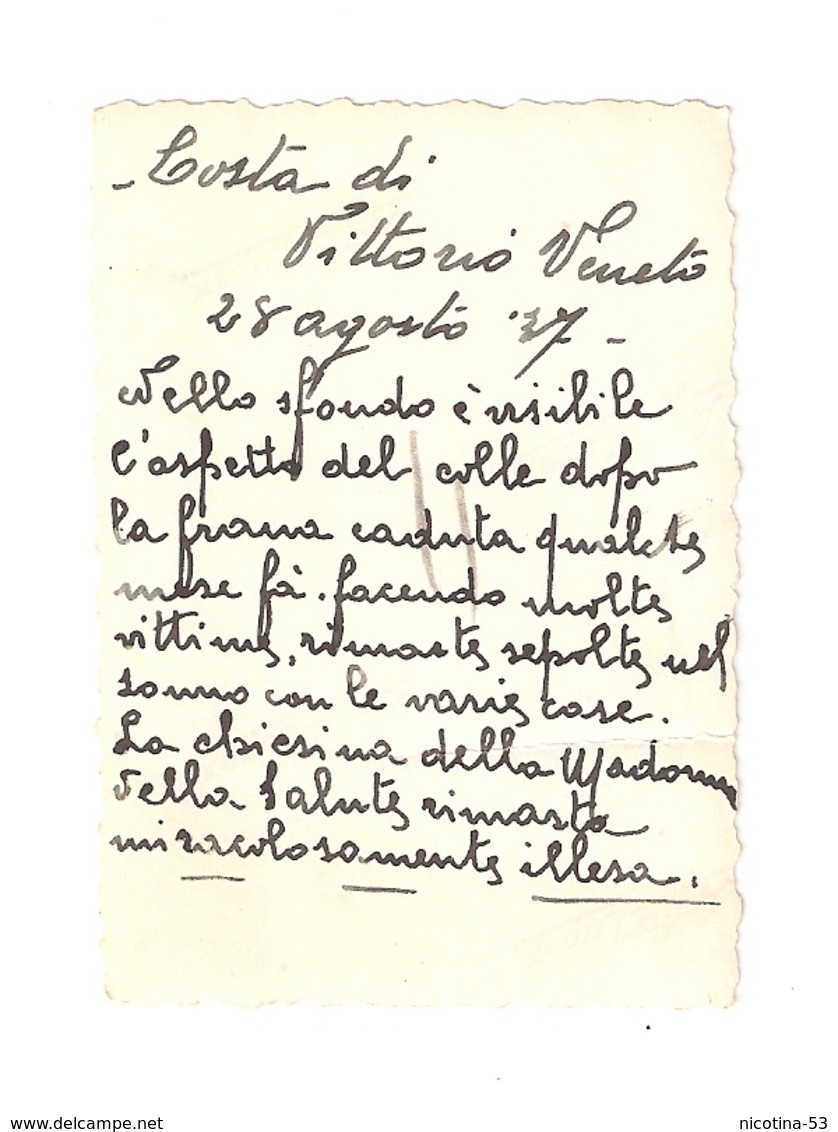 - Costa di
Vittorio Veneto
28 agosto '37 -
Nello sfondo è visibile
l'aspetto del colle dopo
la frana caduta qualche
mese fà. facendo molte
vittime, rimaste sepolte nel
sonno con le varie case.
La chiesina della Madonna
della Salute rimasta
miracolosamente illesa.
www.delcampe.net
nicotina-53